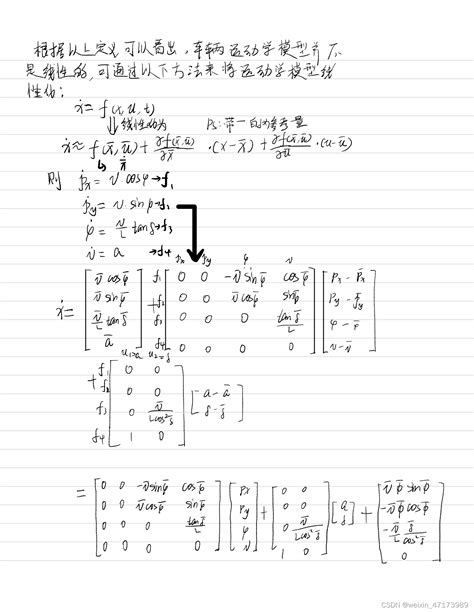 根据以上定义可以看出,车辆运动学模型并不
是线性的,可通过以下方法来将运动学模型线
性化:
ẋ = f(x,u,t)
⇓线性化为 Ps:带一的为参考量
ẋ≈ f(x̄,ū) + ∂f(x̄,ū)/∂x̄ ·(x-x̄) + ∂f(x̄,ū)/∂ū ·(u-ū)
x̄
则 ṗx = v·cosφ→f₁
ṗy = v·sinφ→f₂
φ̇ = v/L tanδ→f₃
v̇ = a →f4
px py φ v
ẋ= [v̄cosφ̄; v̄sinφ̄; v̄/L tanδ̄; ā] + f₁ f₂ f₃ f4 [0 0 -v̄sinφ̄ cosφ̄; 0 0 v̄cosφ̄ sinφ̄; 0 0 0 tanδ̄/L; 0 0 0 0] [px - p̄x; py - p̄y; φ - φ̄; v - v̄]
u₁=a u₂=δ
+ f₁ f₂ f₃ f4 [0 0; 0 0; 0 v̄/Lcos²δ̄; 1 0] [a - ā; δ - δ̄]
= [0 0 -v̄sinφ̄ cosφ̄; 0 0 v̄cosφ̄ sinφ̄; 0 0 0 tanδ̄/L; 0 0 0 0] [px; py; φ; v] + [0 0; 0 0; 0 v̄/Lcos²δ̄; 1 0] [a; δ] + [v̄φ̄sinφ̄; -v̄φ̄cosφ̄; -v̄/L δ̄/cos²δ̄; 0]
CSDN @weixin_47173989